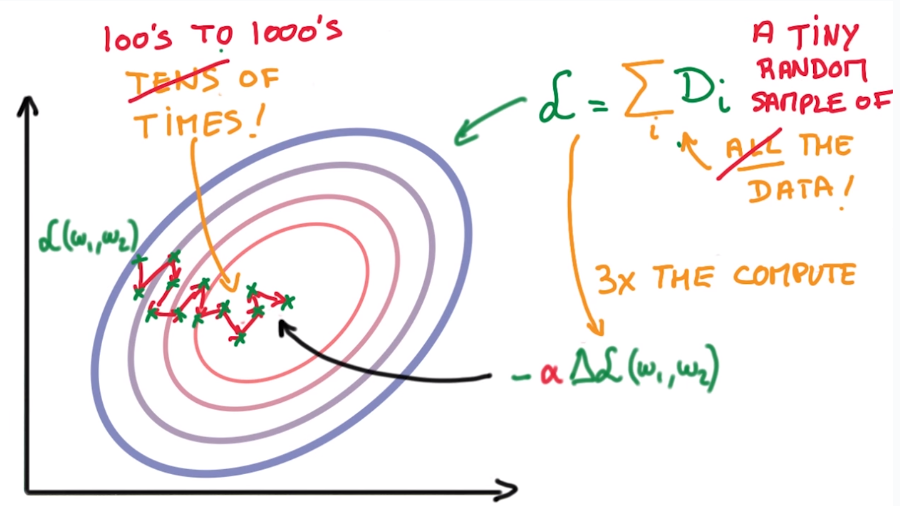 100's TO 1000's
TENS OF
TIMES!
ℒ = Σ Dᵢ
i
A TINY
RANDOM
SAMPLE OF
ALL THE
DATA!
ℒ(ω₁,ω₂)
3x THE COMPUTE
-α Δℒ(ω₁,ω₂)